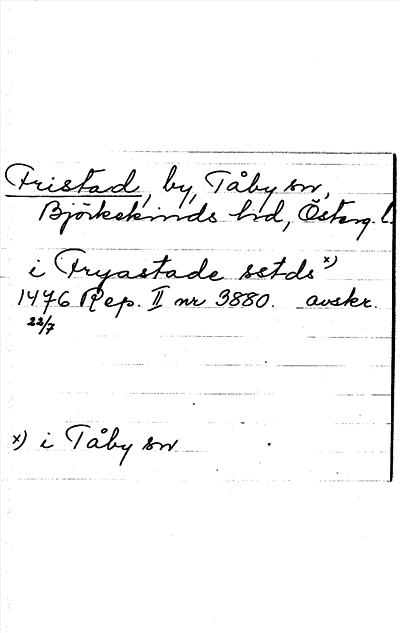 Fristad, by, Tåby sn,
Björkekinds hd, Österg. l.
i Fryastade sstds x)
1476 Rep. II nr 3880. avskr.
22/7
x) i Tåby sn